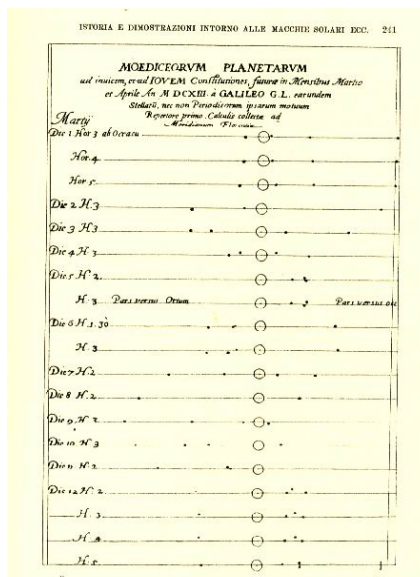 ISTORIA E DIMOSTRAZIONI INTORNO ALLE MACCHIE SOLARI ECC. 241
MOEDICEORVM PLANETARVM
ad invicem, et ad IOVEM Constitutiones, futuræ in Mensibus Martio
et Aprile An M DCXIII. à GALILEO G.L. earundem
Stellarũ, nec non Periodicorum ipsarum motuum
Repertore primo. Calculis collectæ ad
Meridianum Florentiæ
Martij
Die 1 Hor. 3 ab Occasu
Hor. 4
Hor. 5
Die 2 H. 3
Die 3 H. 3
Die 4 H. 3
Die 5 H. 2
H. 3 Pars versus Ortum Pars versus occ
Die 6 H. 1. 30
H. 3
Die 7 H. 2
Die 8 H. 2
Die 9 H. 2
Die 10 H. 3
Die 11 H. 2
Die 12 H. 2
H. 3
H. 4
H. 5